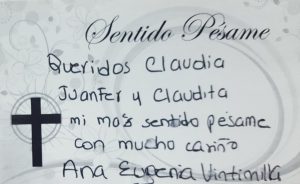 Sentido Pésame
Queridos Claudia
Juanfer y Claudita
mi más sentido pésame
con mucho cariño
Ana Eugenia Vintimilla